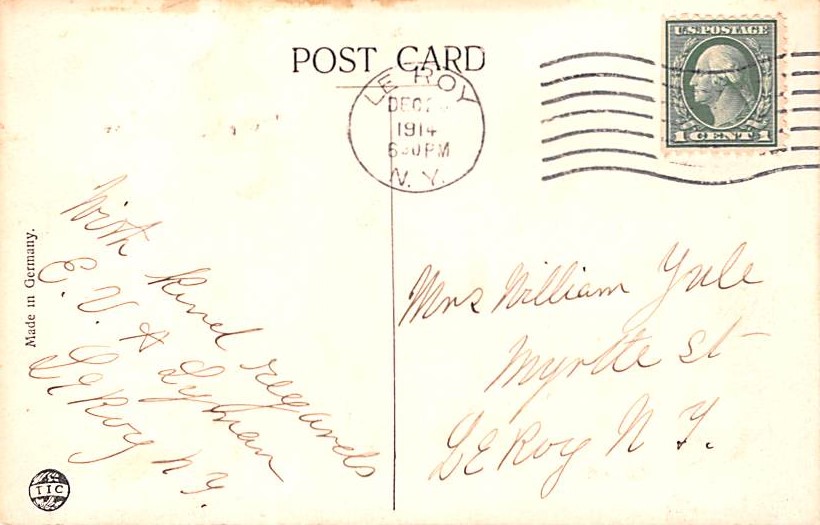 POST CARD
U.S. POSTAGE
1 CENT 1
LE ROY
DEC
1914
6 30 PM
N. Y.
Made in Germany.
With kind regards
E. V. & Lyman
LeRoy N Y.
Mrs William Yule
Myrtle St
LeRoy N Y.
TIC